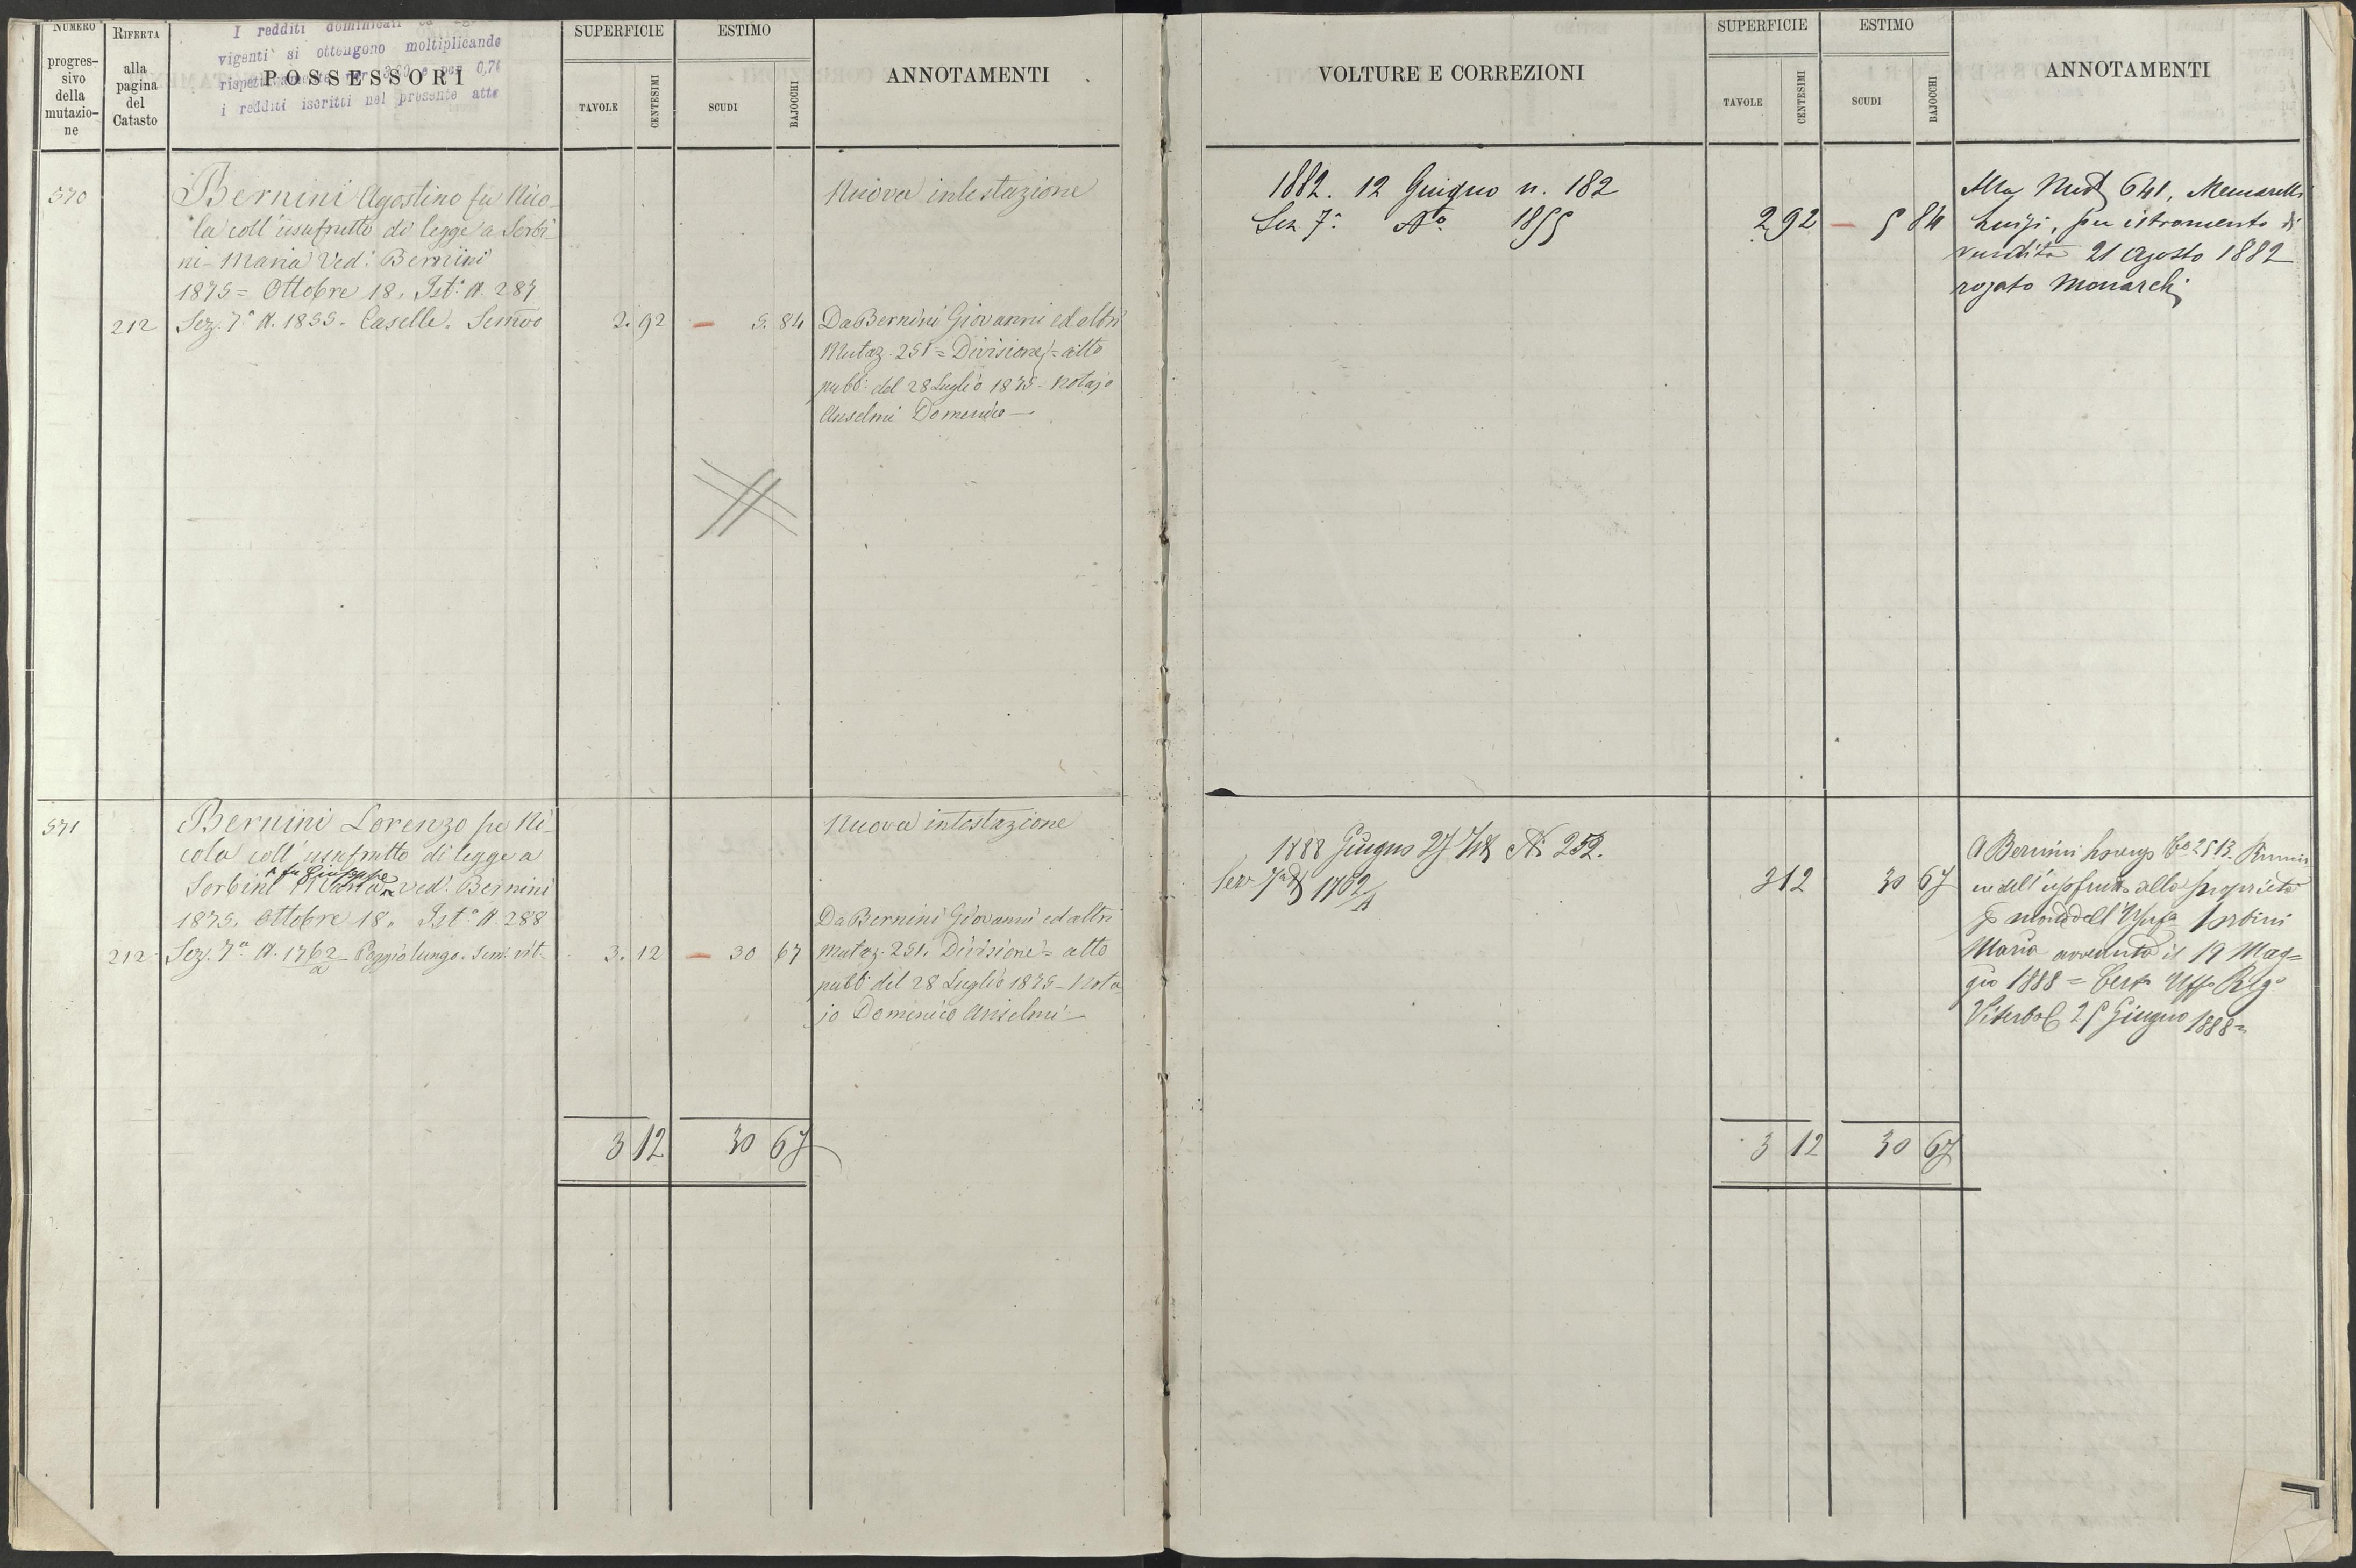 NUMERO
progres-
sivo
della
mutazio-
ne
RIFERTA
alla
pagina
del
Catasto
I redditi dominicali
vigenti si ottengono moltiplicando
per 3,60 e per 0,74
i redditi iscritti nel presente atto
POSSESSORI
SUPERFICIE
TAVOLE
CENTESIMI
ESTIMO
SCUDI
BAJOCCHI
ANNOTAMENTI
570
Bernini Agostino fu Nico-
la coll'usufrutto di legge a Sorbi-
ni Maria Ved: Bernini
1875 = Ottobre 18. Ist: N. 287
212 Sez. 7ª N. 1855. Caselle. Semvo 2. 92 — 5. 84
Nuova intestazione
Da Bernini Giovanni ed altri
Mutaz. 251 = Divisione = atto
pubb: del 28 Luglio 1875 - Notajo
Anselmi Domenico —
571
Bernini Lorenzo fu Ni-
cola coll'usufrutto di legge a
fu Giuseppe
Sorbini Maria ved: Bernini
1875. Ottobre 18. Ist: N. 288
212 Sez. 7ª N. 1762/a Poggio lungo. Sem. vit. 3. 12 — 30 67
Nuova intestazione
Da Bernini Giovanni ed altri
Mutaz. 251. Divisione = atto
pubb del 28 Luglio 1875 - Nota
jo Domenico Anselmi —
3 12 30 67
VOLTURE E CORREZIONI
SUPERFICIE
TAVOLE
CENTESIMI
ESTIMO
SCUDI
BAJOCCHI
ANNOTAMENTI
1882. 12 Giugno n. 182
Sez 7ª No 1855 2 92 — 5 84
Alla Mut 641,
Luigi, per istromento di
vendita 21 Agosto 1882
rogato Monarchi
1888 Giugno 27 N. 252.
Sez 7ª 1762/A 3 12 30 67
A Bernini Lorenzo
dell'usufrutto alla proprietà
dell' Sorbini
Maria avvenuta il 19 Mag=
gio 1888 = Uffo Rego
Viterbo 25 Giugno 1888 =
3 12 30 67